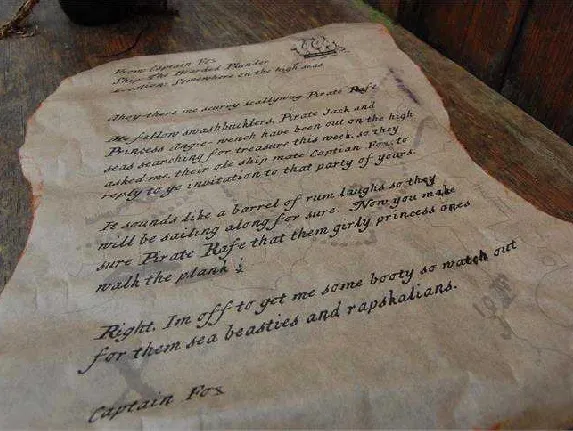 From Captain Fox
Ship: The Bearded Plunder
Location: Somewhere on the high seas
Ahoy there me scurvy scallywag Pirate Rafe
Me fellow swashbucklers, Pirate Jack and
Princess Angie- wench have been out on the high
seas searching for treasure this week, so they
asked me, their ole ship mate Captian Fox, to
reply to ye invitation to that party of years.
It sounds like a barrel of rum laughs so they
will be sailing along for sure. Now you make
sure Pirate Rafe that them girly princess ones
walk the plank!
Right, Im off to get me some booty so watch out
for them sea beasties and rapskalians.
Captain Fox